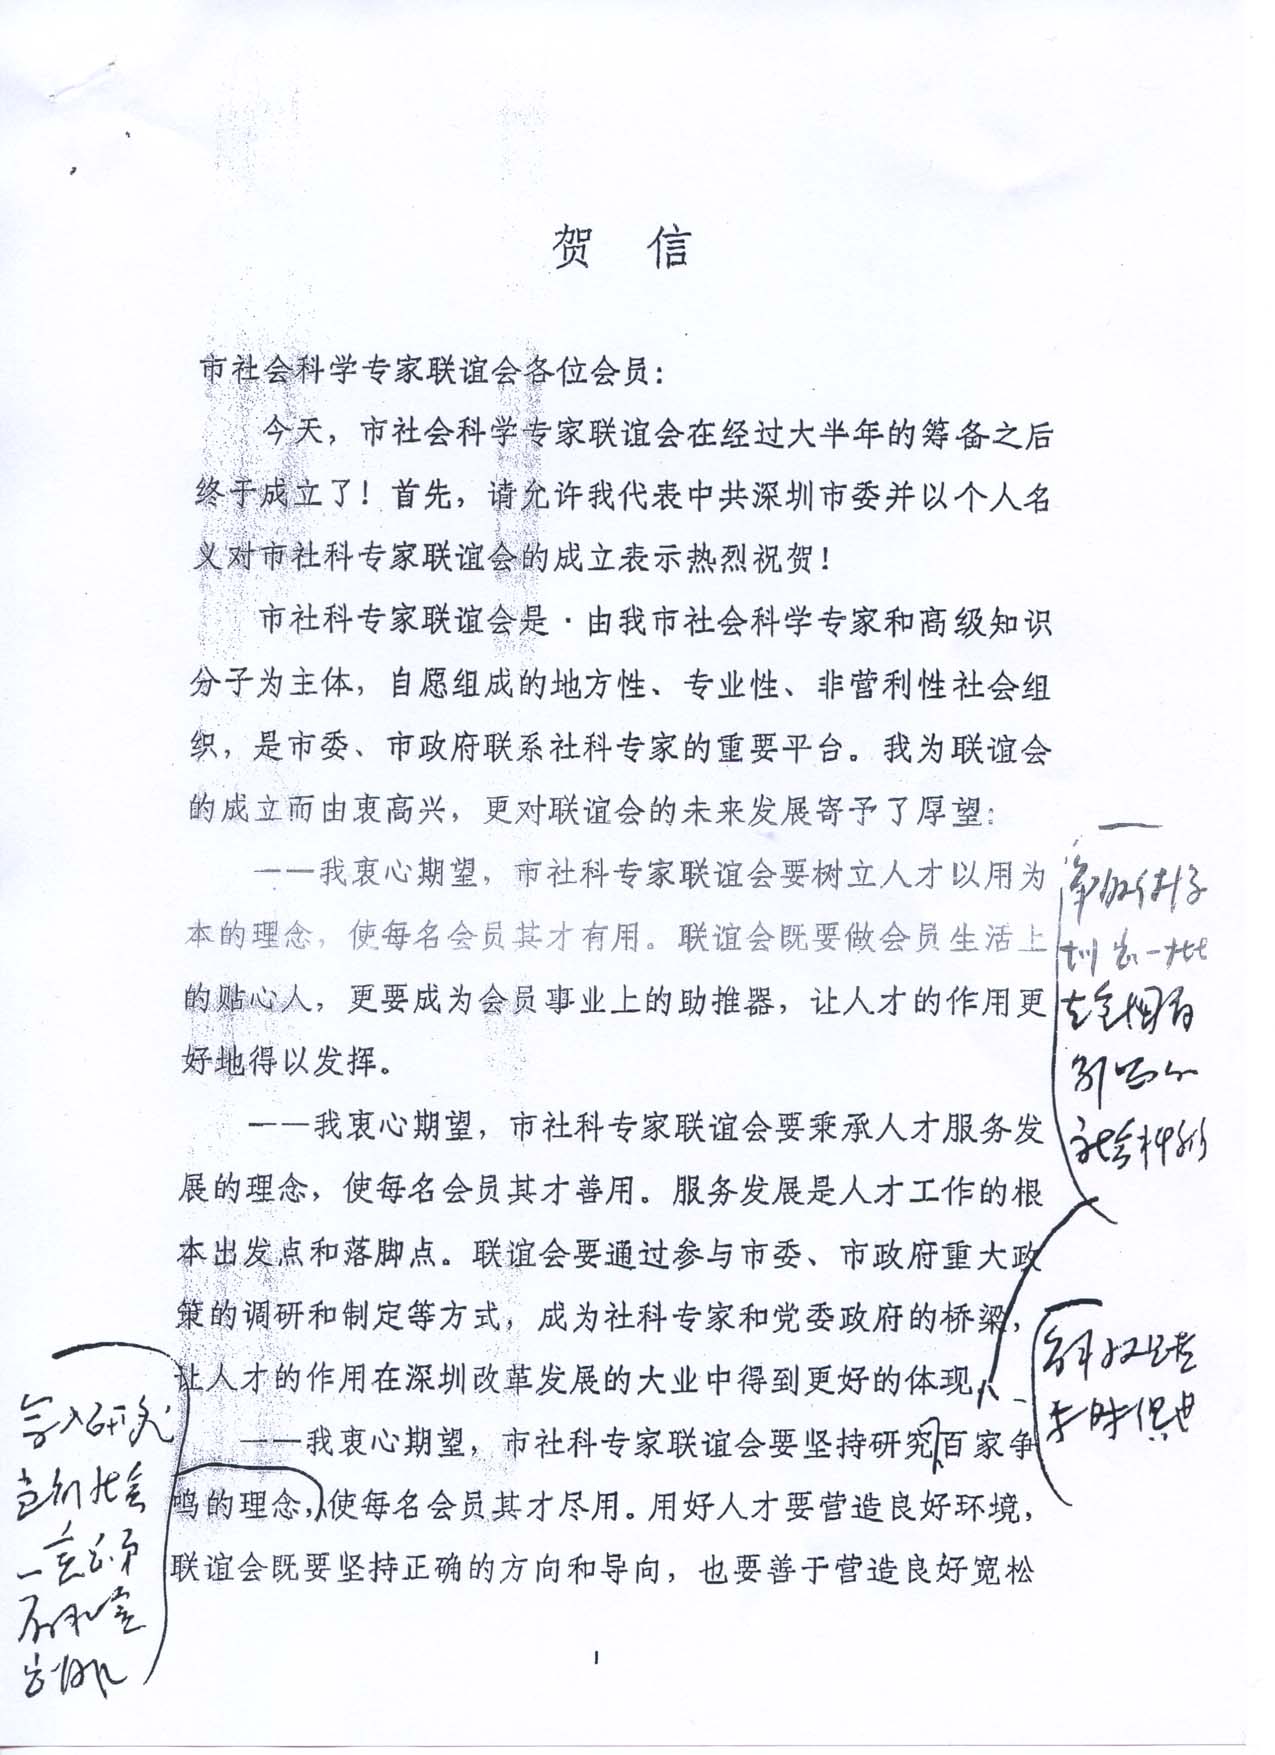 贺 信
市社会科学专家联谊会各位会员：
今天，市社会科学专家联谊会在经过大半年的筹备之后
终于成立了！首先，请允许我代表中共深圳市委并以个人名
义对市社科专家联谊会的成立表示热烈祝贺！
市社科专家联谊会是·由我市社会科学专家和高级知识
分子为主体，自愿组成的地方性、专业性、非营利性社会组
织，是市委、市政府联系社科专家的重要平台。我为联谊会
的成立而由衷高兴，更对联谊会的未来发展寄予了厚望：
——我衷心期望，市社科专家联谊会要树立人才以用为
本的理念，使每名会员其才有用。联谊会既要做会员生活上
的贴心人，更要成为会员事业上的助推器，让人才的作用更
好地得以发挥。
——我衷心期望，市社科专家联谊会要秉承人才服务发
展的理念，使每名会员其才善用。服务发展是人才工作的根
本出发点和落脚点。联谊会要通过参与市委、市政府重大政
策的调研和制定等方式，成为社科专家和党委政府的桥梁，
让人才的作用在深圳改革发展的大业中得到更好的体现，
——我衷心期望，市社科专家联谊会要坚持研究百家争
鸣的理念，使每名会员其才尽用。用好人才要营造良好环境，
联谊会既要坚持正确的方向和导向，也要善于营造良好宽松
1